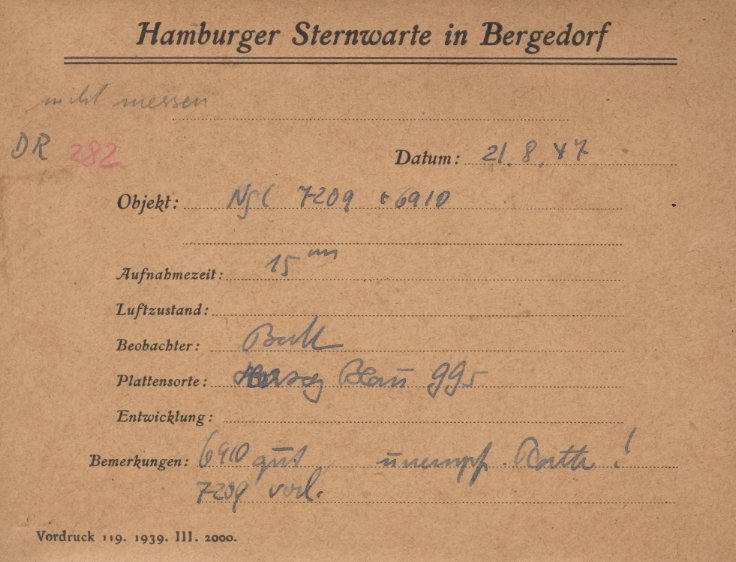 Hamburger Sternwarte in Bergedorf
nicht messen
DR 282
Datum: 21.8.47
Objekt: NGC 7209 + 6910
Aufnahmezeit: 15 m
Luftzustand:
Beobachter:
Plattensorte: Blau 995
Entwicklung:
Bemerkungen: 6910 gut unempf. Platte!
7209 vorl.
Vordruck 119. 1939. III. 2000.